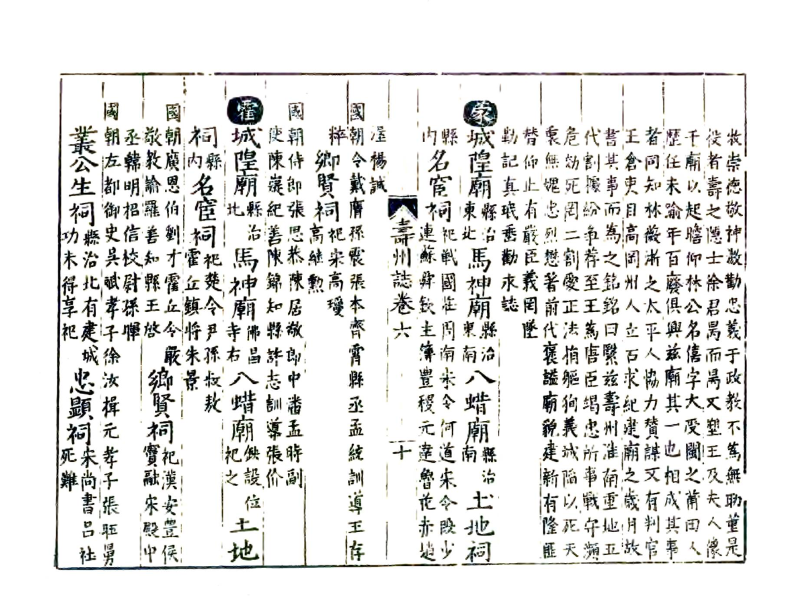 牧崇德敬神敷勸忠義于政教不爲無助董是
役者壽之隱士徐君禺而禺又塑王及夫人像
于廟以起瞻仰林公名僖字大受閩之莆田人
歷任未踰年百廢俱興茲廟其一也相成其事
者同知林薇浙之太平人協力賛謀又有判官
王倉吏目高岡州人立石求紀建廟之歲月故
書其事而為之銘銘曰繄茲壽州淮南重地五
代割據紛爭荐至王篤唐臣竭忠所事戰守瀕
危幼死罔二割愛正法捐軀狥義城陷以死天
衷無媿忠烈懋著前代褒謚廟貌建新有隆匪
替仰止有嚴臣義罔墜
勒記真珉垂勸永誌
蒙城隍廟縣治東北馬神廟縣治東南八蜡廟縣治南土地祠
縣內名宦祠祀戰國莊周南宋令何道宋令段少連蘇舜欽主簿豐稷元達魯花赤
壽州誌卷六 十
渥楊誠
國朝令戴廌孫震張本齊霄縣丞孟統訓導王存
粹鄉賢祠祀宋高瓊高繼勲
國朝侍郎張思恭陳居敬郎中潘孟時副
使陳嶷紀善陳錦知縣許志訓導張价
霍城隍廟縣治北馬神廟佛昌寺右八蜡廟缺設位祀之土地
祠縣內名宦祠祀楚令尹孫叔敖霍丘鎮將朱景
國朝廣恩伯劉才霍丘令嚴敬教諭羅善知縣王啓鄉賢祠祀漢安豐侯竇融宋殿中
丞韓明招信校尉孫暉
國朝左都御史吳斌孝子徐汝楫元孝子張旺舅
叢公生祠縣治北有建城功未得享祀忠顯祠宋尚書呂祉死難